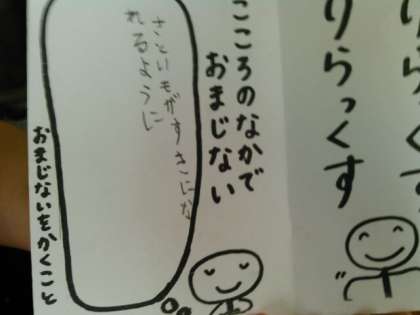 りらっくす
りらっくす
こころのなかで
おまじない
さといもがすきにな
れるように
おまじないをかくこと